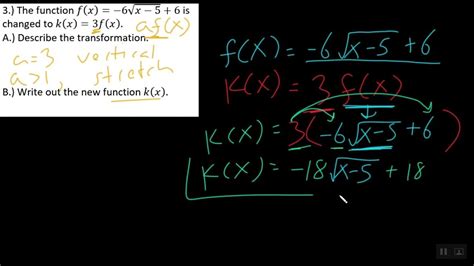 3.) The function f(x) = −6√x − 5 + 6 is
changed to k(x) = 3f(x). af(x)
A.) Describe the transformation.
a=3 vertical
a>1, stretch
B.) Write out the new function k(x).
f(x) = -6√x-5 + 6
K(x) = 3 f(x)
K(x) = 3(-6√x-5 + 6)
K(x) = -18√x-5 + 18